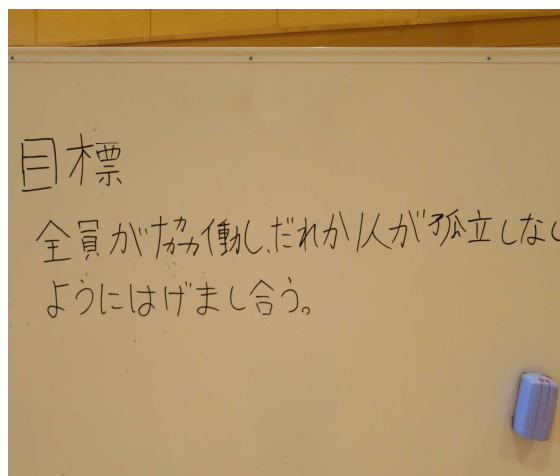 目標
全員が協働し、だれか1人が孤立しない
ようにはげまし合う。